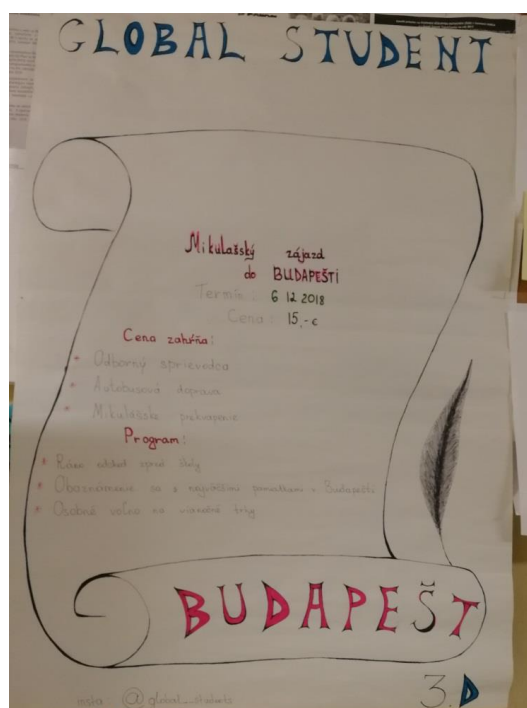 GLOBAL STUDENT
Mikulašský zájazd
do BUDAPEŠTI
Termín: 6 12 2018
Cena: 15,-€
Cena zahŕňa:
* Odborný sprievodca
* Autobusová doprava
* Mikulášske prekvapenie
Program:
* Ráno odchod spred školy
* Oboznámenie sa s najväčšími pamiatkami v Budapešti
* Osobné voľno na vianočné trhy
BUDAPEŠT
3.D
insta: @global_students